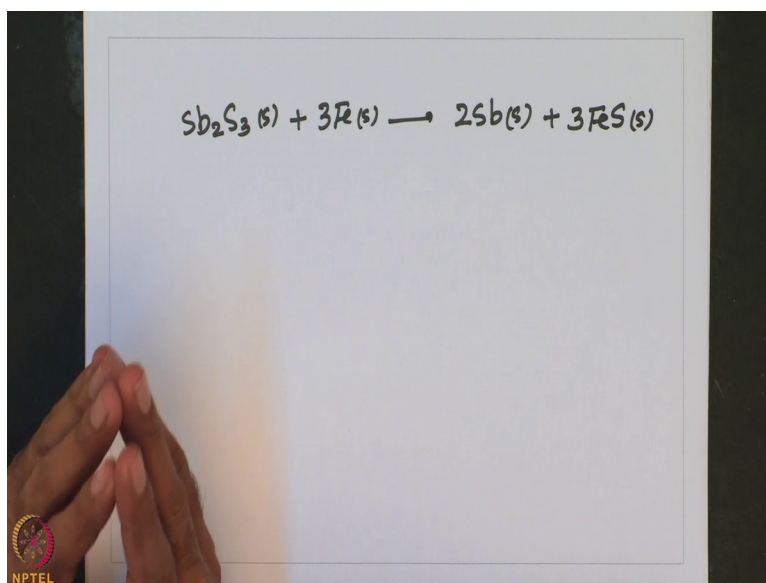 Sb₂S₃(s) + 3Fe(s) ⟶ 2Sb(s) + 3FeS(s)
NPTEL